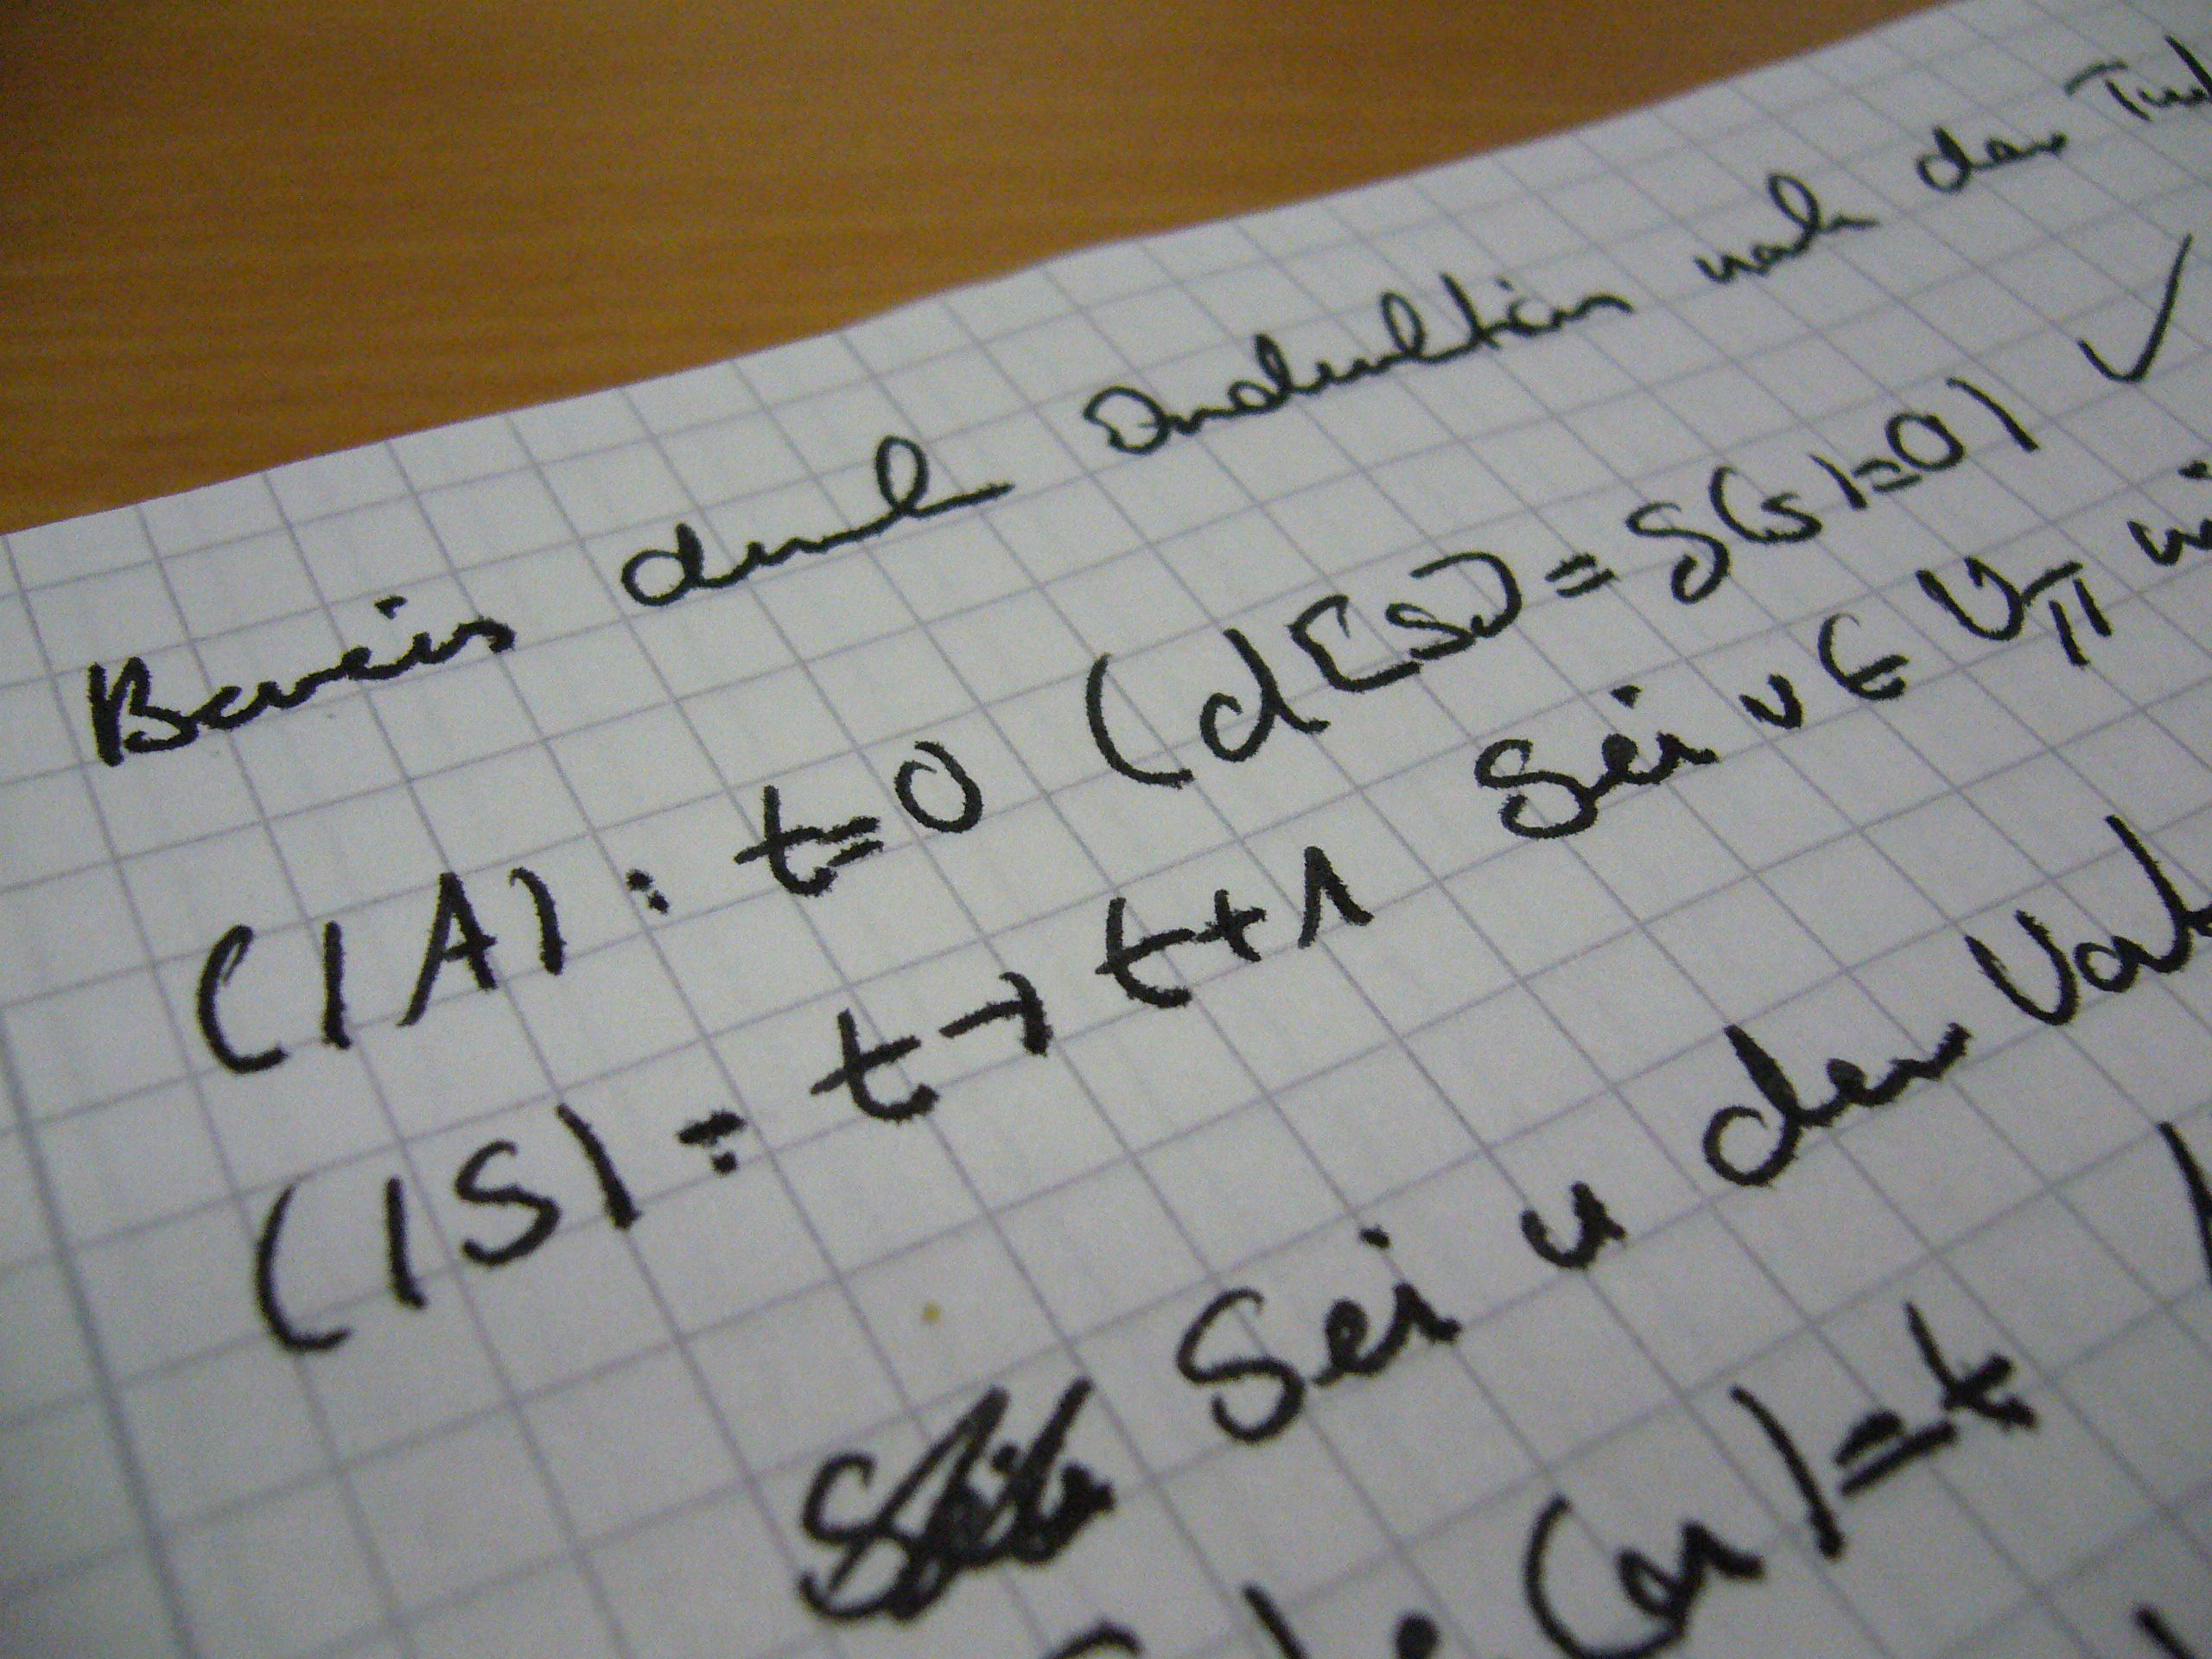 Beweis durch Induktion nach der
(IA): t=0 (d[s] = δ(s)=0) ✓
(IS): t → t+1 Sei v ∈ V_π
Sei u der
(u)=t